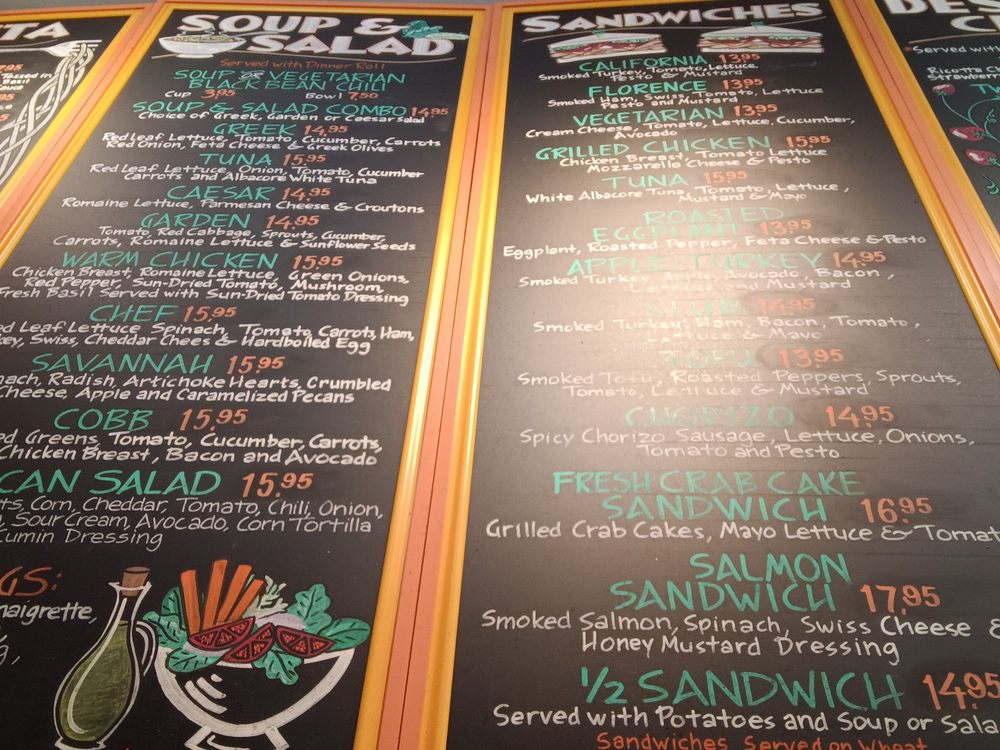 TA
7.95
Tossed in
Basil
Sauce
SOUP &
SALAD
Served with Dinner Roll
SOUP OR VEGETARIAN
BLACK BEAN CHILI
Cup 3.95 Bowl 7.50
SOUP & SALAD COMBO 14.95
Choice of Greek, Garden or Caesar Salad
GREEK 14.95
Red Leaf Lettuce, Tomato, Cucumber, Carrots
Red Onion, Feta Cheese & Greek Olives
TUNA 15.95
Red Leaf Lettuce, Onion, Tomato, Cucumber
Carrots and Albacore White Tuna
CAESAR 14.95
Romaine Lettuce, Parmesan Cheese & Croutons
GARDEN 14.95
Tomato, Red Cabbage, Sprouts, Cucumber,
Carrots, Romaine Lettuce & Sunflower Seeds
WARM CHICKEN 15.95
Chicken Breast, Romaine Lettuce, Green Onions,
Red Pepper, Sun-Dried Tomato, Mushroom,
Fresh Basil Served with Sun-Dried Tomato Dressing
CHEF 15.95
ed Leaf Lettuce Spinach, Tomato, Carrots, Ham,
key, Swiss, Cheddar Chees & Hardboiled Egg
SAVANNAH 15.95
nach, Radish, Artichoke Hearts, Crumbled
Cheese, Apple and Caramelized Pecans
COBB 15.95
ed Greens, Tomato, Cucumber, Carrots,
Chicken Breast, Bacon and Avocado
CAN SALAD 15.95
ts, Corn, Cheddar, Tomato, Chili, Onion,
Sour Cream, Avocado, Corn Tortilla
Cumin Dressing
GS:
naigrette,
SANDWICHES
CALIFORNIA 13.95
Smoked Turkey, Tomato, Lettuce,
& Mustard
FLORENCE 13.95
Smoked Ham, Swiss, Tomato, Lettuce
Pesto and Mustard
VEGETARIAN 13.95
Cream Cheese, Tomato, Lettuce, Cucumber,
Avocado
GRILLED CHICKEN 15.95
Chicken Breast, Tomato Lettuce
Mozzarella Cheese & Pesto
TUNA 15.95
White Albacore Tuna, Tomato, Lettuce,
Mustard & Mayo
ROASTED
EGGPLANT 13.95
Eggplant, Roasted Pepper, Feta Cheese & Pesto
APPLE TURKEY 14.95
Smoked Turkey, Apple, Avocado, Bacon,
Lettuce and Mustard
CLUB 14.95
Smoked Turkey, Ham, Bacon, Tomato,
Lettuce & Mayo
TOFU 13.95
Smoked Tofu, Roasted Peppers, Sprouts,
Tomato, Lettuce & Mustard
CHORIZO 14.95
Spicy Chorizo Sausage, Lettuce, Onions,
Tomato and Pesto
FRESH CRAB CAKE
SANDWICH 16.95
Grilled Crab Cakes, Mayo Lettuce & Tomat
SALMON
SANDWICH 17.95
Smoked Salmon, Spinach, Swiss Cheese &
Honey Mustard Dressing
1/2 SANDWICH 14.95
Served with Potatoes and Soup or Sala
Sandwiches Served on Wheat
DES
Served with
Ricotta Ch
Strawberr